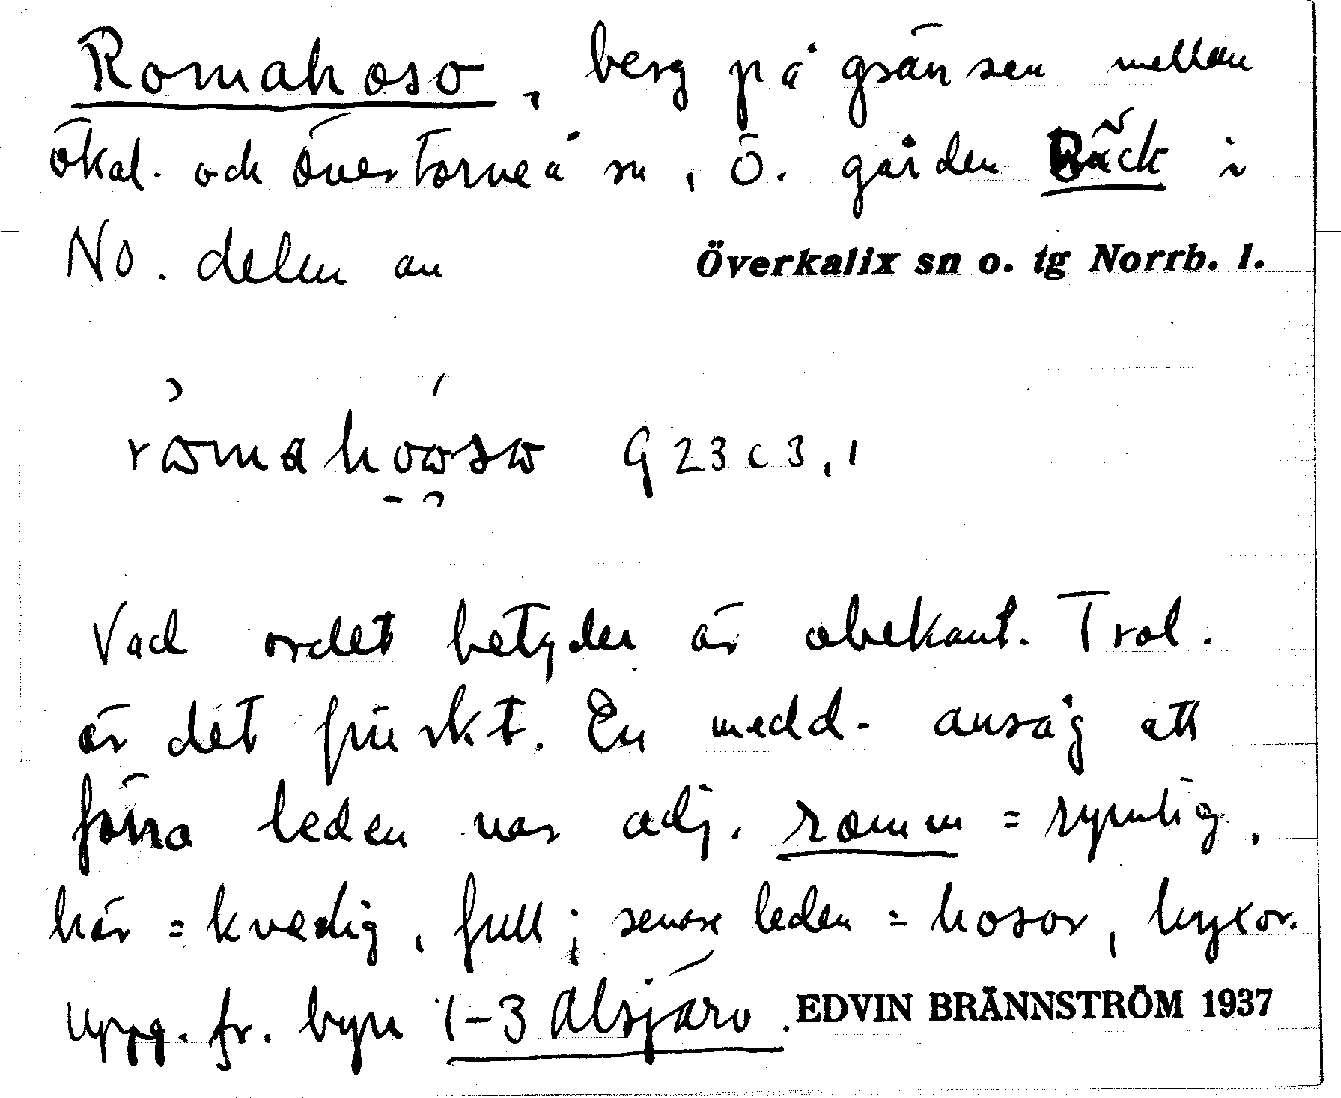 Romahoso, berg på gränsen mellan
Ökal. och Övertorneå sn, Ö. gården Bäck i
NO. delen av Överkalix sn o. tg Norrb. l.
G 23 c 3, 1
Vad ordet betyder är obekant. Trol.
är det finskt. En medd. ansåg att
förra leden var adj. romm = rymlig,
här = , full; senare leden = hosor, byxor.
Uppg. fr. byn 1-3 Alsjärv. EDVIN BRÄNNSTRÖM 1937